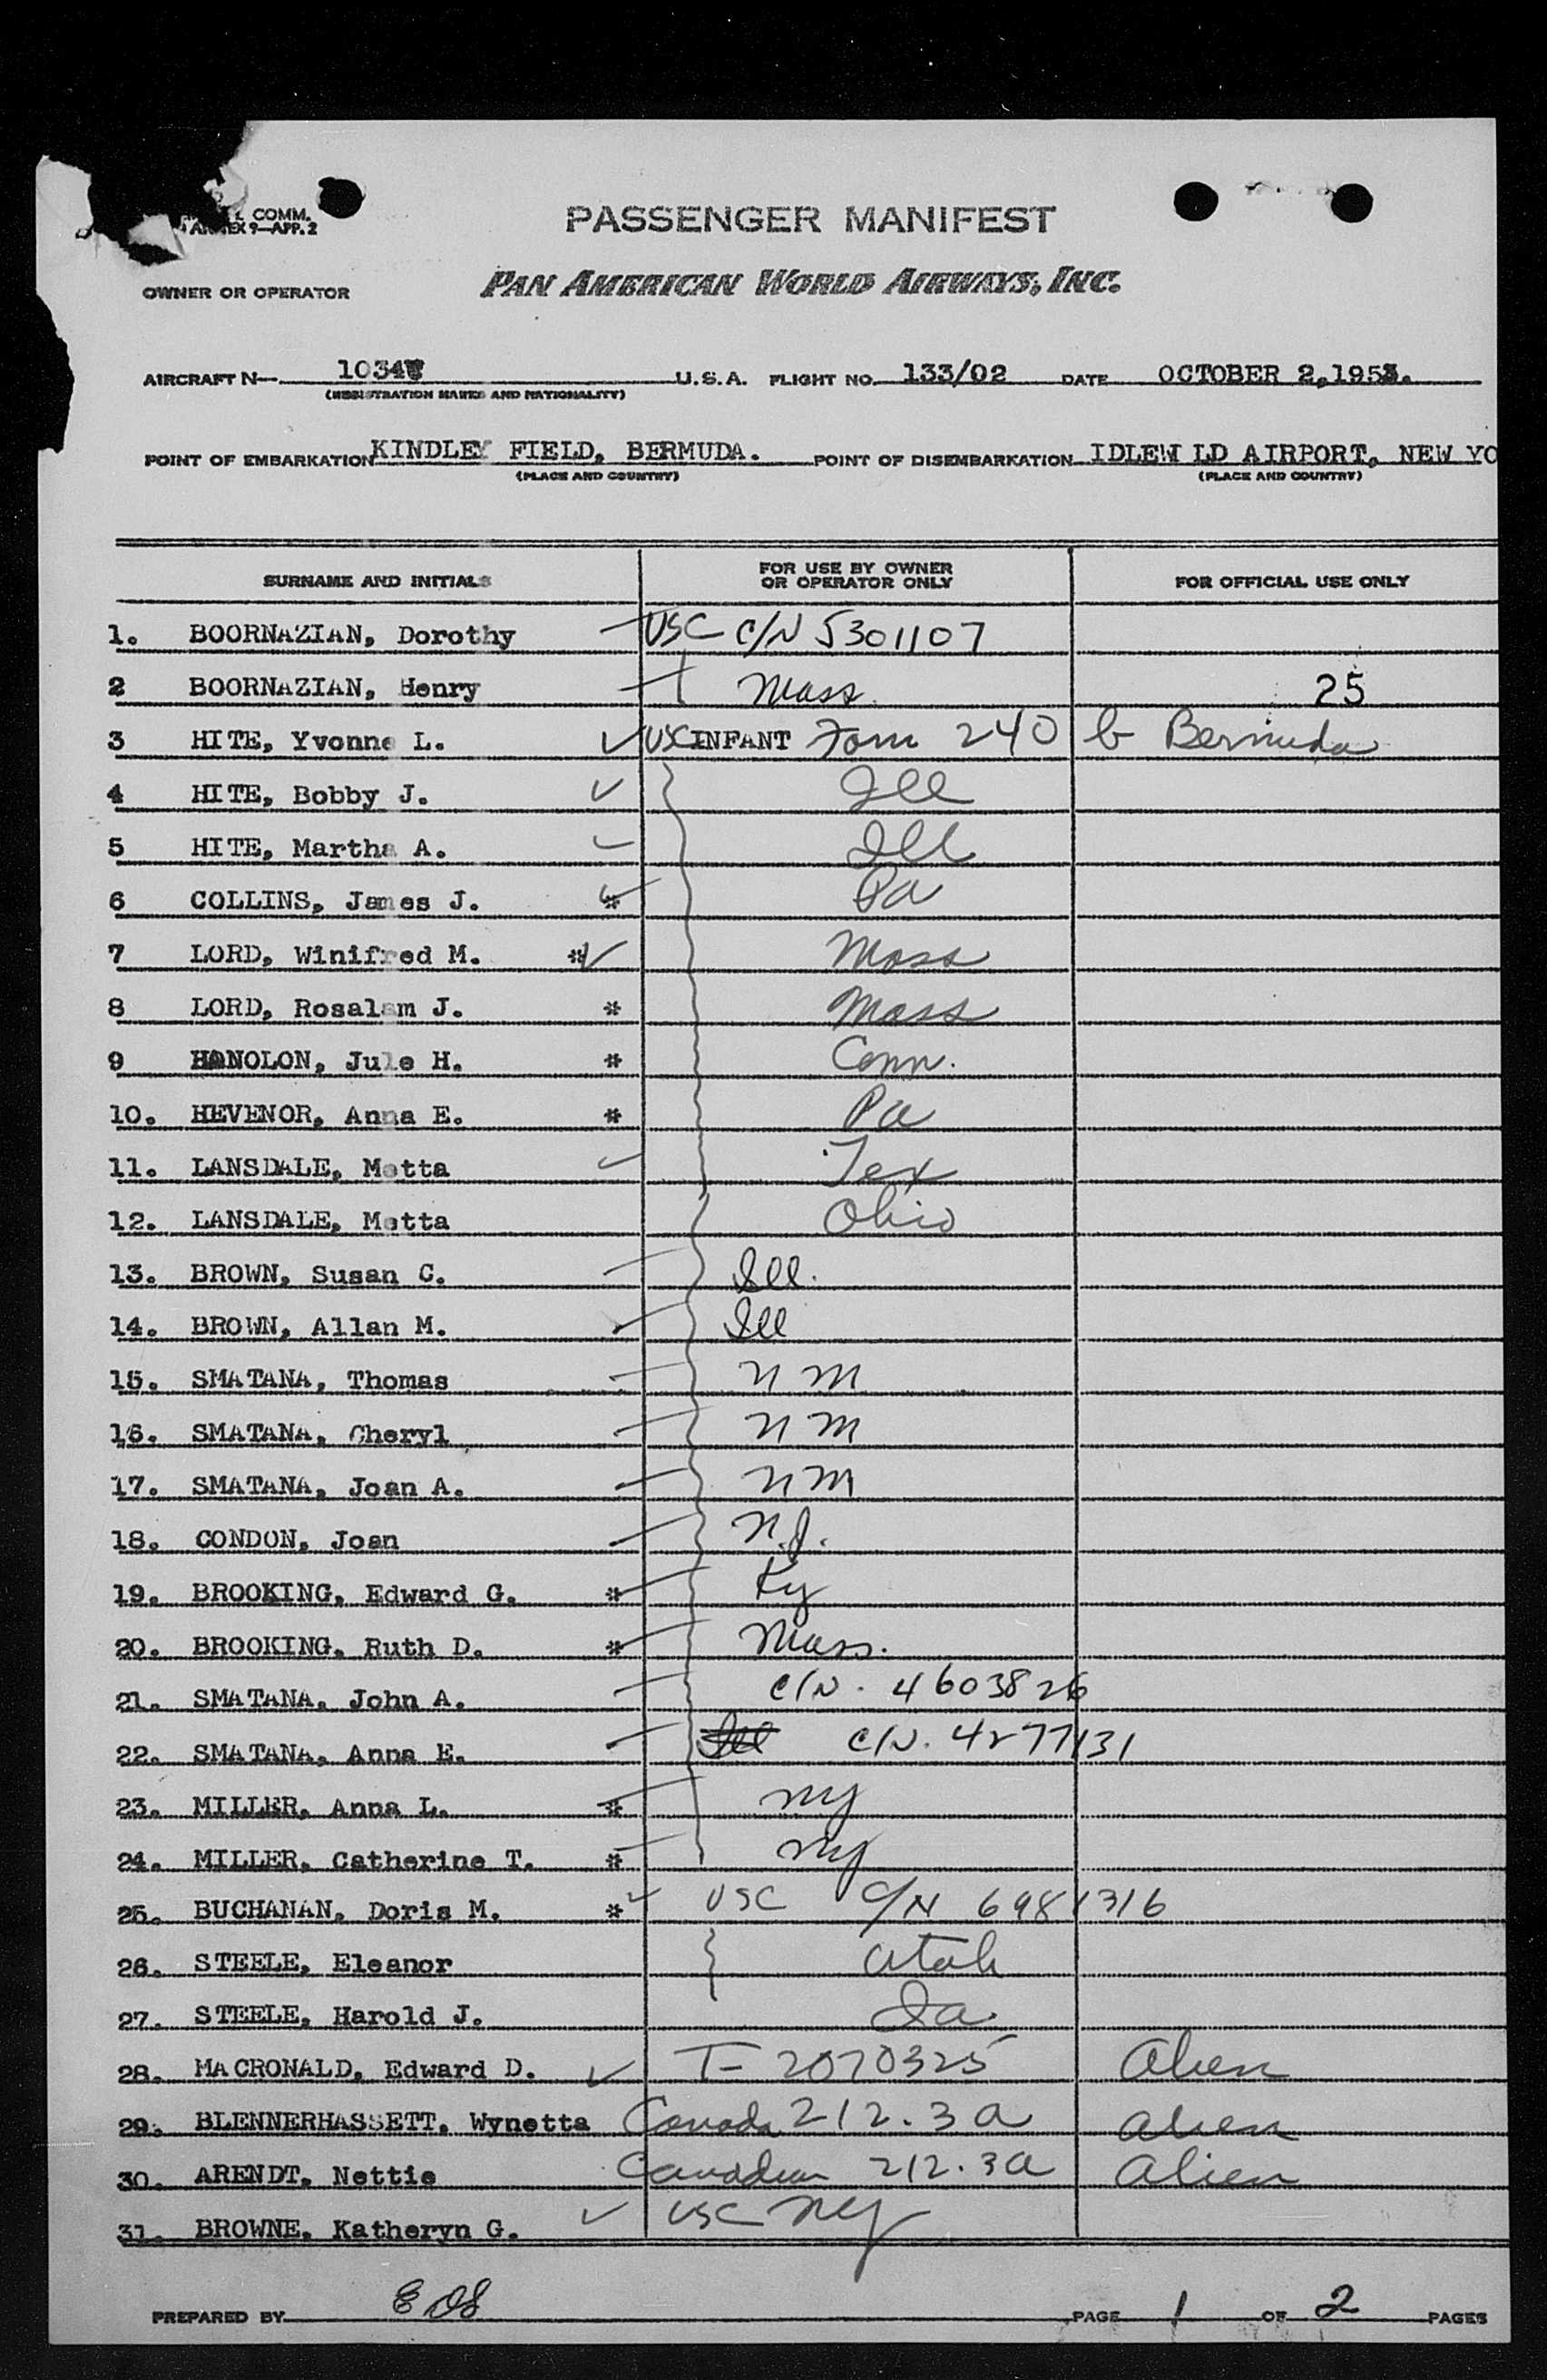 COMM.
ANNEX 9—APP. 2
PASSENGER MANIFEST
OWNER OR OPERATOR PAN AMERICAN WORLD AIRWAYS, INC.
AIRCRAFT N— 1034 U.S.A. FLIGHT NO. 133/02 DATE OCTOBER 2, 1953.
(REGISTRATION MARKS AND NATIONALITY)
POINT OF EMBARKATION KINDLEY FIELD, BERMUDA. POINT OF DISEMBARKATION IDLEW LD AIRPORT, NEW YO
(PLACE AND COUNTRY) (PLACE AND COUNTRY)
SURNAME AND INITIALS FOR USE BY OWNER OR OPERATOR ONLY FOR OFFICIAL USE ONLY
1. BOORNAZIAN, Dorothy USC C/N 5301107
2 BOORNAZIAN, Henry Mass. 25
3 HITE, Yvonne L. USC INFANT Form 240 b Bermuda
4 HITE, Bobby J. Ill
5 HITE, Martha A. Ill
6 COLLINS, James J. * Pa
7 LORD, Winifred M. * Mass
8 LORD, Rosalam J. * Mass
9 HANOLON, Jule H. * Conn.
10. HEVENOR, Anna E. * Pa
11. LANSDALE, Metta Tex
12. LANSDALE, Metta Ohio
13. BROWN, Susan C. Ill.
14. BROWN, Allan M. Ill
15. SMATANA, Thomas N M
16. SMATANA, Cheryl N M
17. SMATANA, Joan A. N M
18. CONDON, Joan N.J.
19. BROOKING, Edward G. * Ky
20. BROOKING, Ruth D. * Mass.
21. SMATANA, John A. C/N. 4603826
22. SMATANA, Anna E. Ill C/N. 4277131
23. MILLER, Anna L. * NY
24. MILLER, Catherine T. * NY
25. BUCHANAN, Doris M. * USC C/N 6981316
26. STEELE, Eleanor Utah
27. STEELE, Harold J. Ia.
28. MACRONALD, Edward D. T- 2070325 Alien
29. BLENNERHASSETT, Wynetta Canada 212.3a Alien
30. ARENDT, Nettie Canadian 212.3a Alien
31. BROWNE, Katheryn G. USC NY
PREPARED BY EDS PAGE 1 OF 2 PAGES